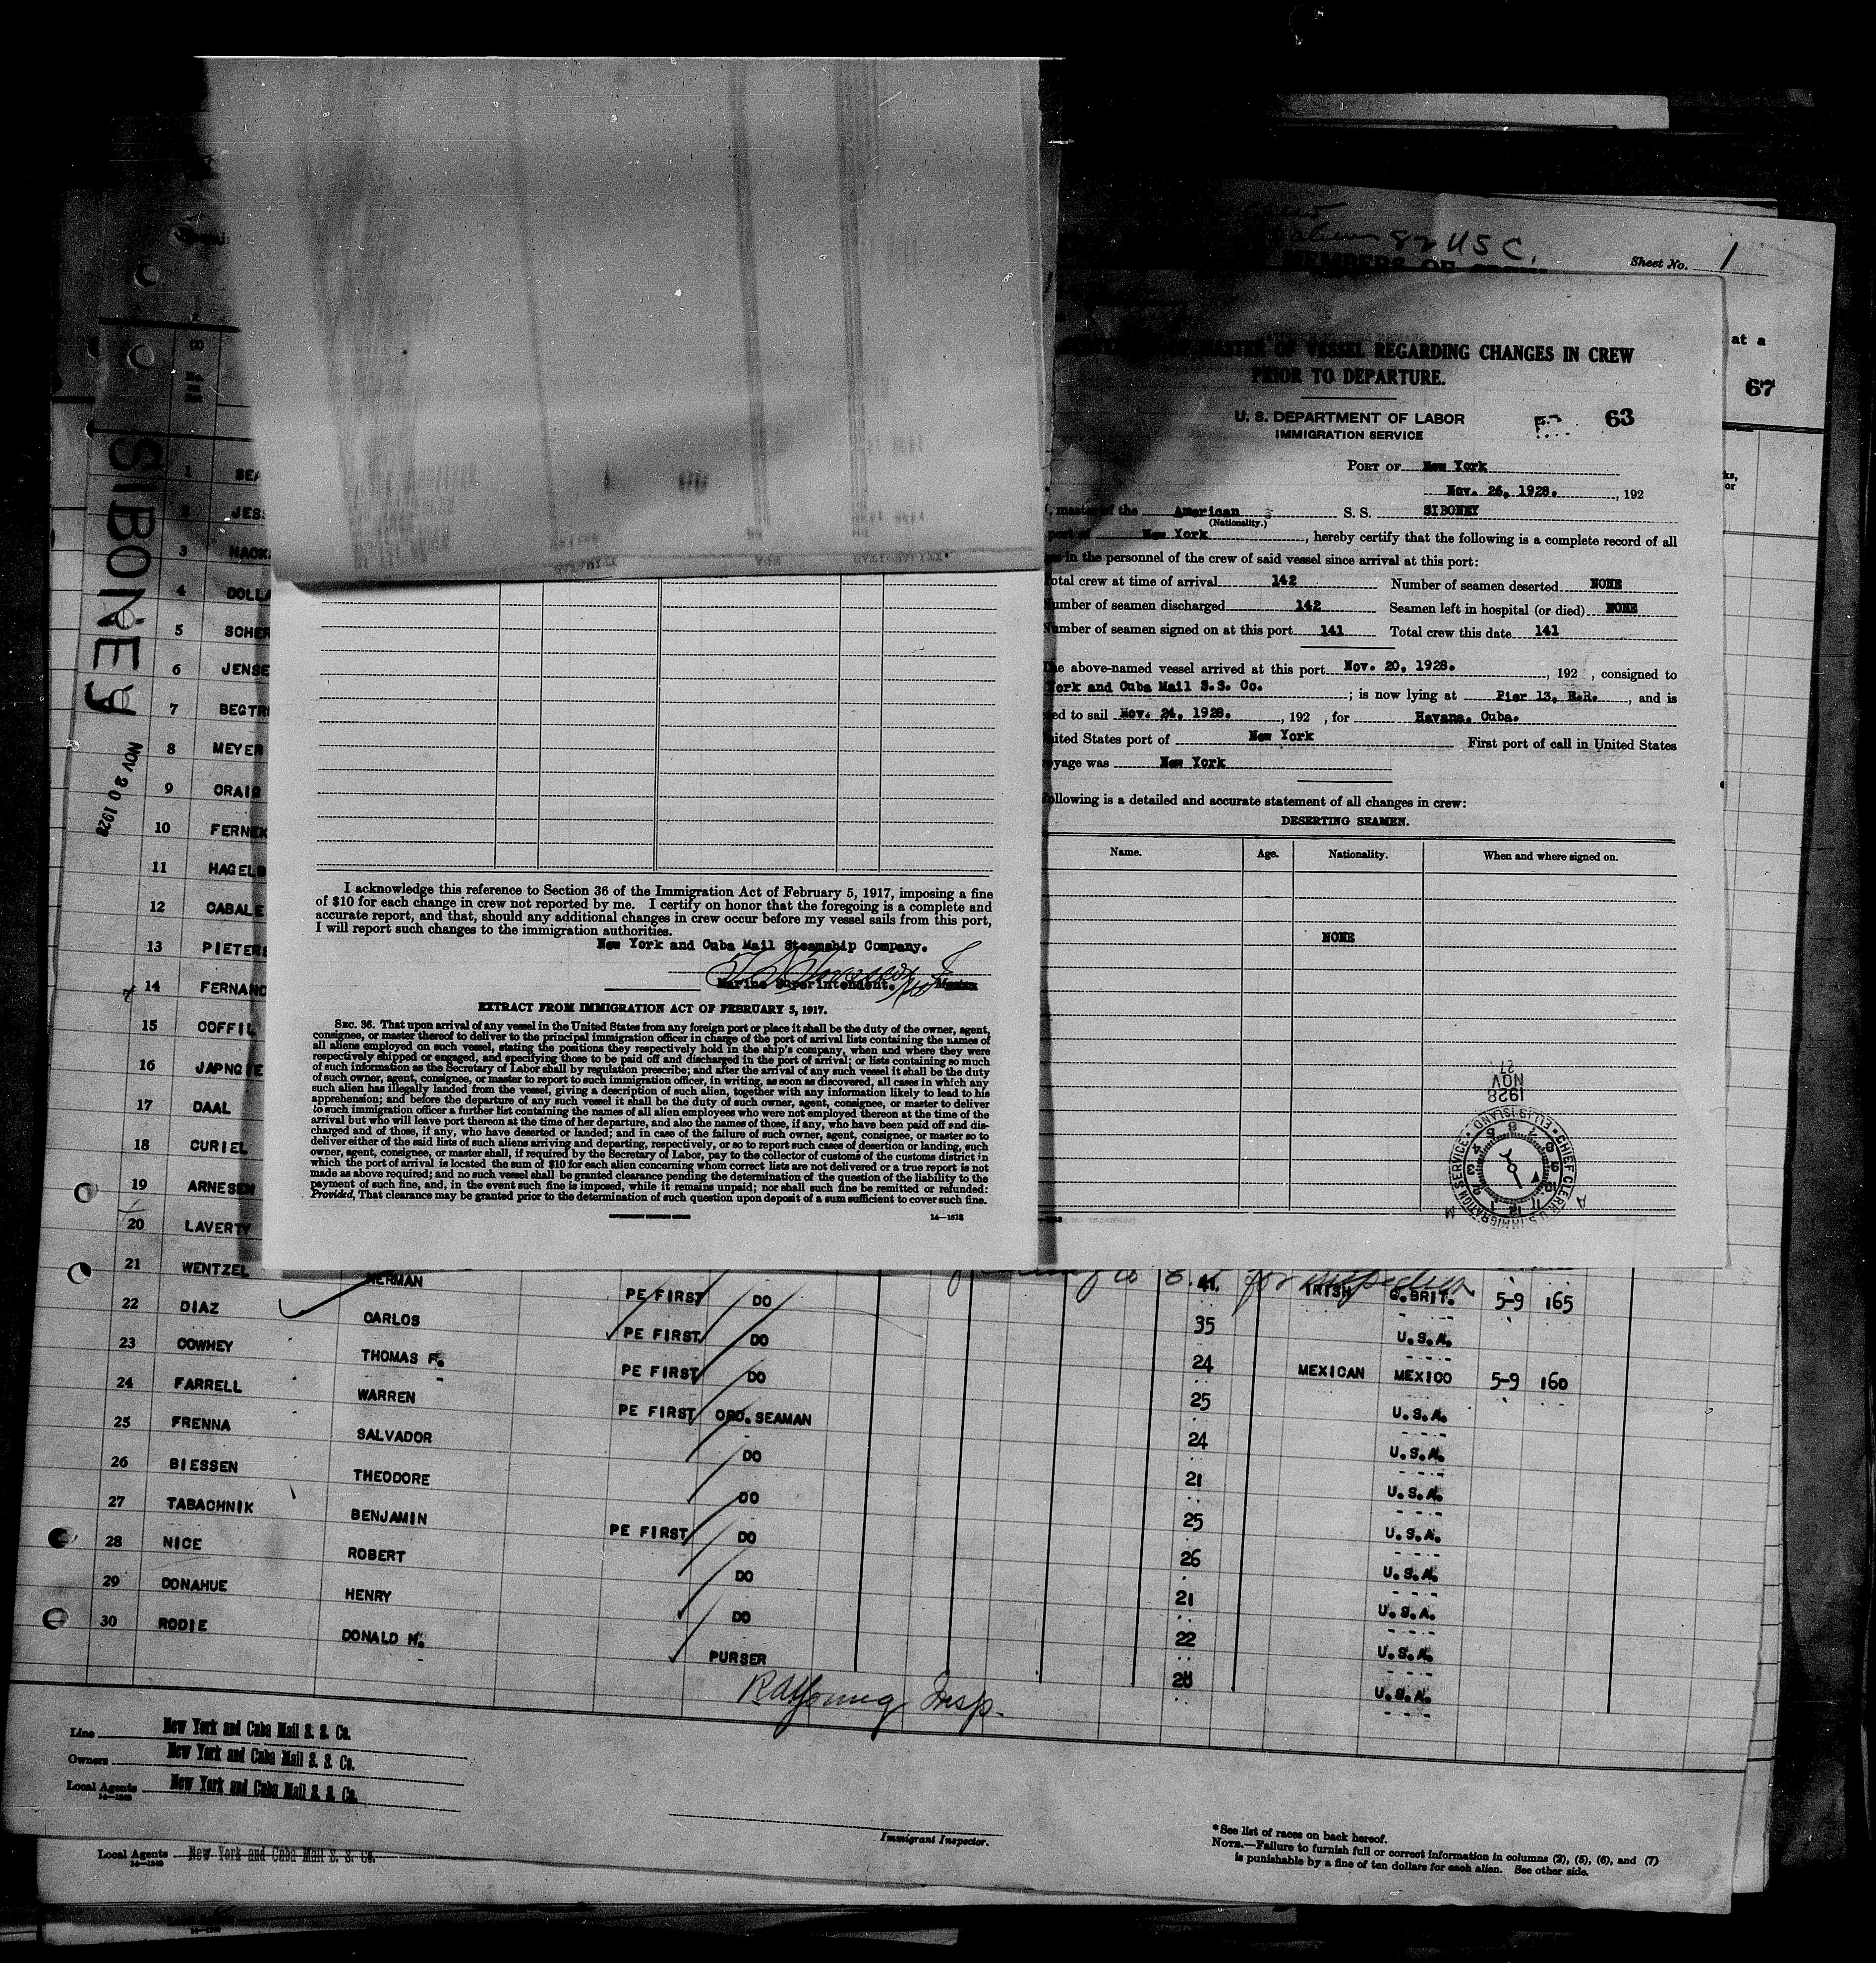 USC.
MEMBERS OF CREW
Sheet No. 1
at a
67
MASTER OF VESSEL REGARDING CHANGES IN CREW
PRIOR TO DEPARTURE.
U. S. DEPARTMENT OF LABOR
IMMIGRATION SERVICE
63
PORT OF New York
Nov. 26, 1928. , 192
, master of the American S. S. SIBONEY
(Nationality.)
port of New York , hereby certify that the following is a complete record of all
in the personnel of the crew of said vessel since arrival at this port:
Total crew at time of arrival 142 Number of seamen deserted NONE
Number of seamen discharged 142 Seamen left in hospital (or died) NONE
Number of seamen signed on at this port 141 Total crew this date 141
The above-named vessel arrived at this port Nov. 20, 1928. , 192 , consigned to
York and Cuba Mail S.S. Co. ; is now lying at Pier 13, E.R. , and is
ed to sail Nov. 24, 1928. , 192 , for Havana, Cuba.
United States port of New York First port of call in United States
oyage was New York
following is a detailed and accurate statement of all changes in crew:
DESERTING SEAMEN.
Name. Age. Nationality. When and where signed on.
NONE
NOV 27 1928
CHIEF CLERK U.S. IMMIGRATION SERVICE • ELLIS ISLAND •
A M
I acknowledge this reference to Section 36 of the Immigration Act of February 5, 1917, imposing a fine
of $10 for each change in crew not reported by me. I certify on honor that the foregoing is a complete and
accurate report, and that, should any additional changes in crew occur before my vessel sails from this port,
I will report such changes to the immigration authorities.
New York and Cuba Mail Steamship Company.
Marine Superintendent. Master
EXTRACT FROM IMMIGRATION ACT OF FEBRUARY 5, 1917.
SEC. 36. That upon arrival of any vessel in the United States from any foreign port or place it shall be the duty of the owner, agent,
consignee, or master thereof to deliver to the principal immigration officer in charge of the port of arrival lists containing the names of
all aliens employed on such vessel, stating the positions they respectively hold in the ship's company, when and where they were
respectively shipped or engaged, and specifying those to be paid off and discharged in the port of arrival; or lists containing so much
of such information as the Secretary of Labor shall by regulation prescribe; and after the arrival of any such vessel it shall be the duty
of such owner, agent, consignee, or master to report to such immigration officer, in writing, as soon as discovered, all cases in which any
such alien has illegally landed from the vessel, giving a description of such alien, together with any information likely to lead to his
apprehension; and before the departure of any such vessel it shall be the duty of such owner, agent, consignee, or master to deliver
to such immigration officer a further list containing the names of all alien employees who were not employed thereon at the time of the
arrival but who will leave port thereon at the time of her departure, and also the names of those, if any, who have been paid off and dis-
charged and of those, if any, who have deserted or landed; and in case of the failure of such owner, agent, consignee, or master so to
deliver either of the said lists of such aliens arriving and departing, respectively, or so to report such cases of desertion or landing, such
owner, agent, consignee, or master shall, if required by the Secretary of Labor, pay to the collector of customs of the customs district in
which the port of arrival is located the sum of $10 for each alien concerning whom correct lists are not delivered or a true report is not
made as above required; and no such vessel shall be granted clearance pending the determination of the question of the liability to the
payment of such fine, and, in the event such fine is imposed, while it remains unpaid; nor shall such fine be remitted or refunded:
Provided, That clearance may be granted prior to the determination of such question upon deposit of a sum sufficient to cover such fine.
GOVERNMENT PRINTING OFFICE 14—1618
SIBONEY
NOV 20 1928
1 SEA
2 JESS
3 HACK
4 DOLLA
5 SCHER
6 JENSE
7 BEGTR
8 MEYER
9 CRAIG
10 FERNEK
11 HAGELB
12 CABALE
13 PIETERS
14 FERNAND
15 COFFIL
16 JAPNGIE
17 DAAL
18 CURIEL
19 ARNESEN
20 LAVERTY
for inspection
21 WENTZEL HERMAN PE FIRST DO 41 IRISH G.BRIT. 5-9 165
22 DIAZ CARLOS PE FIRST DO 35 U.S.A.
23 COWHEY THOMAS F. PE FIRST DO 24 MEXICAN MEXICO 5-9 160
24 FARRELL WARREN PE FIRST ORD. SEAMAN 25 U.S.A.
25 FRENNA SALVADOR DO 24 U.S.A.
26 BIESSEN THEODORE DO 21 U.S.A.
27 TABACHNIK BENJAMIN PE FIRST DO 25 U.S.A.
28 NICE ROBERT DO 26 U.S.A.
29 DONAHUE HENRY DO 21 U.S.A.
30 RODIE DONALD M. PURSER 22 U.S.A.
28 U.S.A.
RAYoung Insp.
Line New York and Cuba Mail S. S. Co.
Owners New York and Cuba Mail S. S. Co.
Local Agents New York and Cuba Mail S. S. Co.
14—1240
Immigrant Inspector.
*See list of races on back hereof.
NOTE.—Failure to furnish full or correct information in columns (2), (5), (6), and (7)
is punishable by a fine of ten dollars for each alien. See other side.
Local Agents New York and Cuba Mail S. S. Co.
14—1240